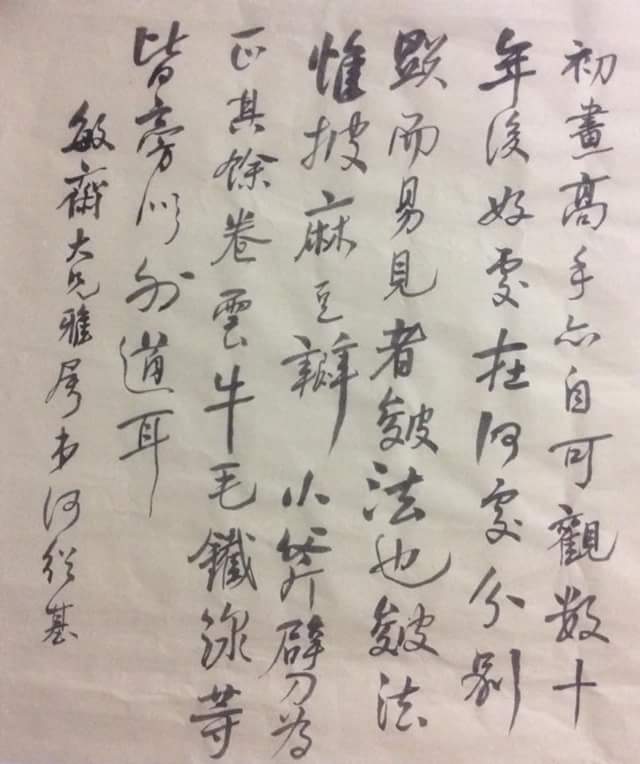 初畫高手亦自可觀數十
年後好處在何處分別
顯而易見者皴法也皴法
惟披麻豆瓣小斧劈為
正其餘卷雲牛毛鐵線等
皆旁門外道耳
敏齋大兄雅属弟何紹基